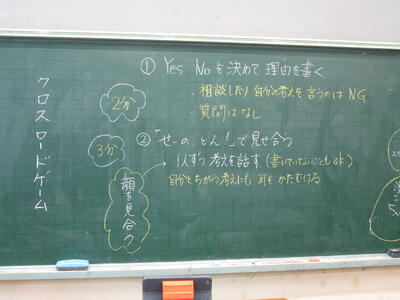 クロスロードゲーム
① Yes Noを決めて理由を書く
2分
・相談したり 自分の考えを言うのはNG
・質問はなし
3分
②「せーの、どん!」で見せ合う
1人ずつ考えを話す(書いていないこともok)
自分とちがう考えにも 耳をかたむける
顔を見合う